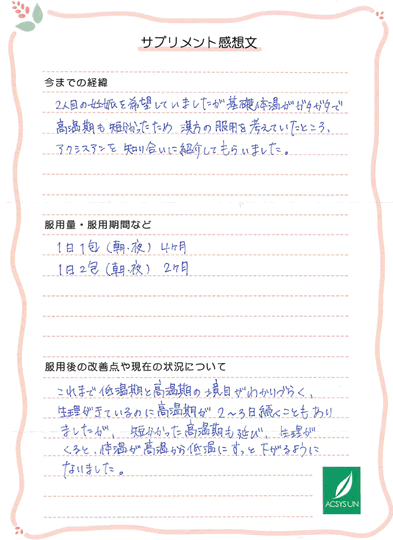 サプリメント感想文
今までの経緯
2人目の妊娠を希望していましたが基礎体温がガタガタで
高温期も短かったため 漢方の服用を考えていたところ、
アクシスアンを知り合いに紹介してもらいました。
服用量・服用期間など
1日1包(朝・夜) 4ヶ月
1日2包(朝・夜) 2ヶ月
服用後の改善点や現在の状況について
これまで低温期と高温期の境目がわかりづらく、
生理がきているのに高温期が2〜3日続くこともあり
ましたが、短かかった高温期も延び、生理が
くると、体温が高温から低温にすっと下がるように
なりました。
ACSYS UN